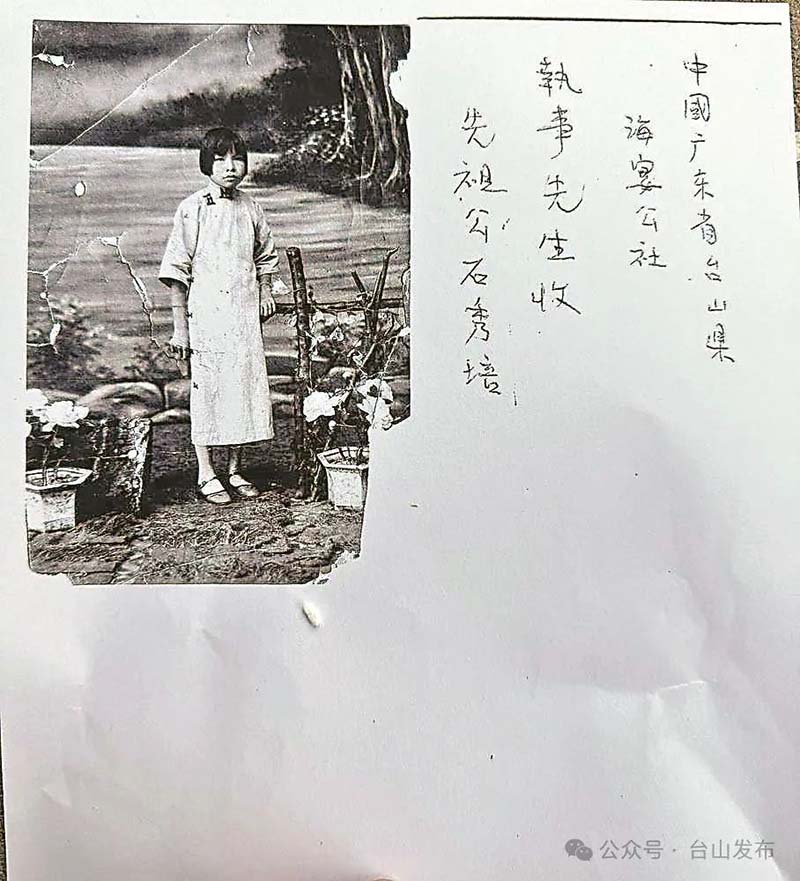 中國广东省台山県
海宴公社
執事先生收
先祖公石秀培
公众号 · 台山发布